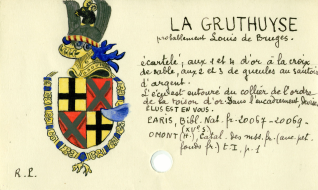 LA GRUTHUYSE
probablement Louis de Bruges.
écartelé, aux 1 et 4 d'or à la croix
de sable, aux 2 et 3 de gueules au sautoir
d'argent.
L'écu est entouré du collier de l'ordre
de la toison d'or. Dans l'encadrement, devise:
PLUS EST EN VOUS.
PARIS, Bibl. Nat. fr. 20067-20069
(XVe s)
OMONT (H.), Catal. des mss. fr. (anc. pet.
fonds fr.) t. I, p.
R. L.